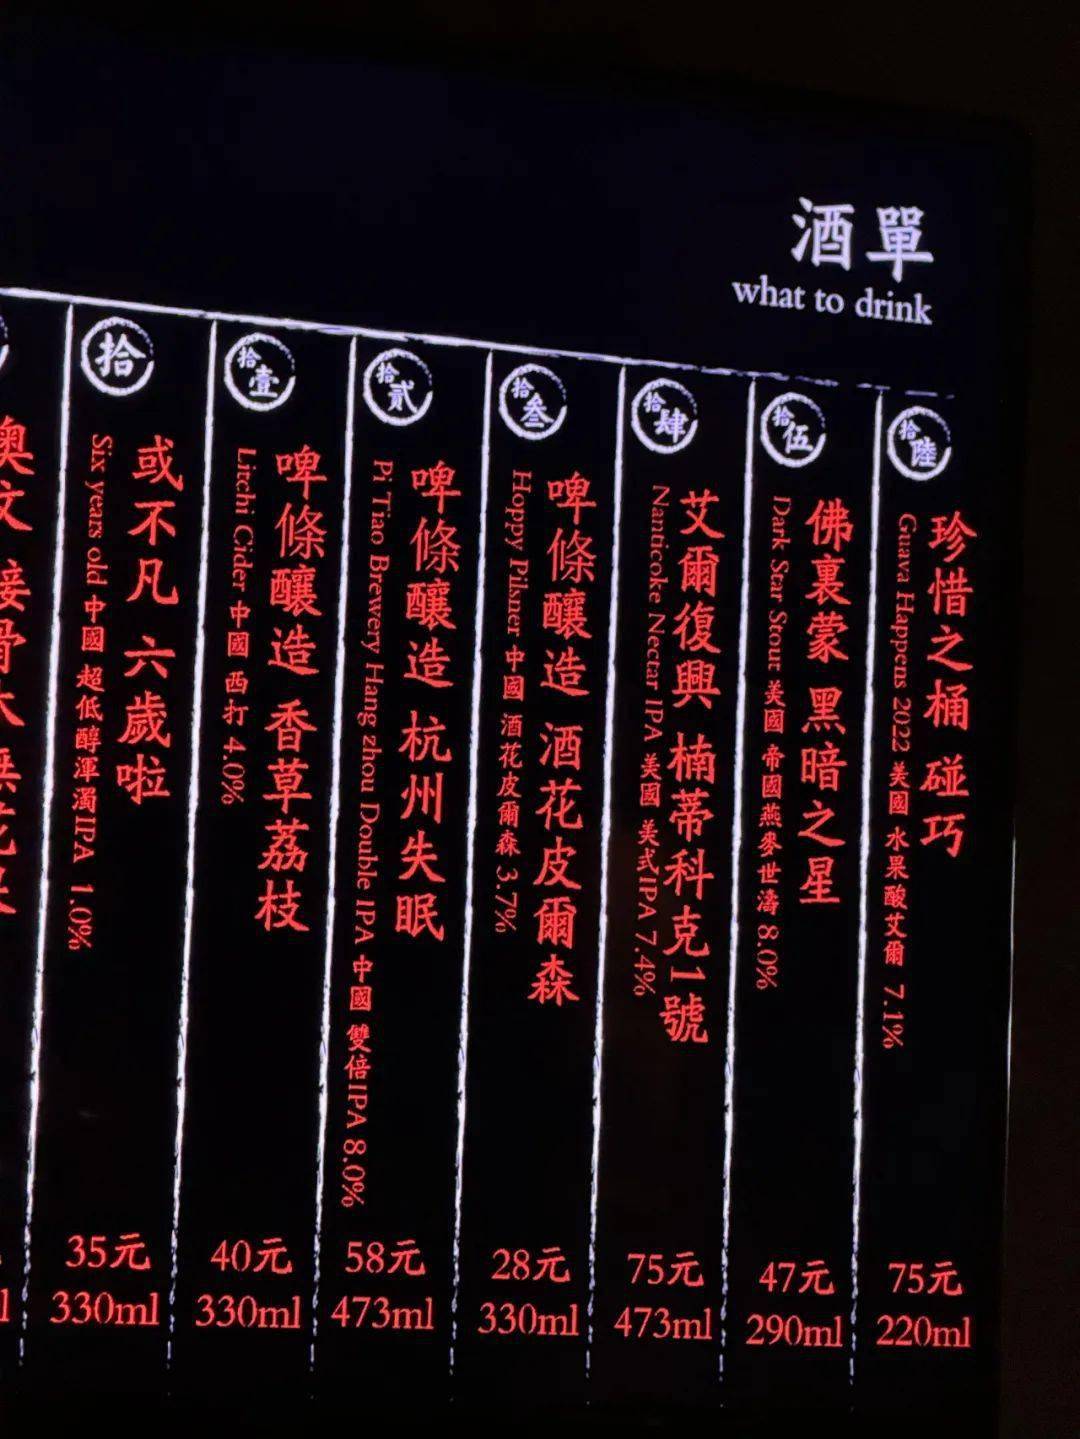 酒單
what to drink
拾
或不凡 六歲啦
Six years old 中國 超低醇渾濁IPA 1.0%
35元
330ml
拾壹
啤條釀造 香草荔枝
Litchi Cider 中國 西打 4.0%
40元
330ml
拾貳
啤條釀造 杭州失眠
Pi Tiao Brewery Hang zhou Double IPA 中國 雙倍IPA 8.0%
58元
473ml
拾叁
啤條釀造 酒花皮爾森
Hoppy Pilsner 中國 酒花皮爾森 3.7%
28元
330ml
拾肆
艾爾復興 楠蒂科克1號
Nanticoke Nectar IPA 美國 美式IPA 7.4%
75元
473ml
拾伍
佛裏蒙 黑暗之星
Dark Star Stout 美國 帝國燕麥世濤 8.0%
47元
290ml
拾陸
珍惜之桶 碰巧
Guava Happens 2022 美國 水果酸艾爾 7.1%
75元
220ml